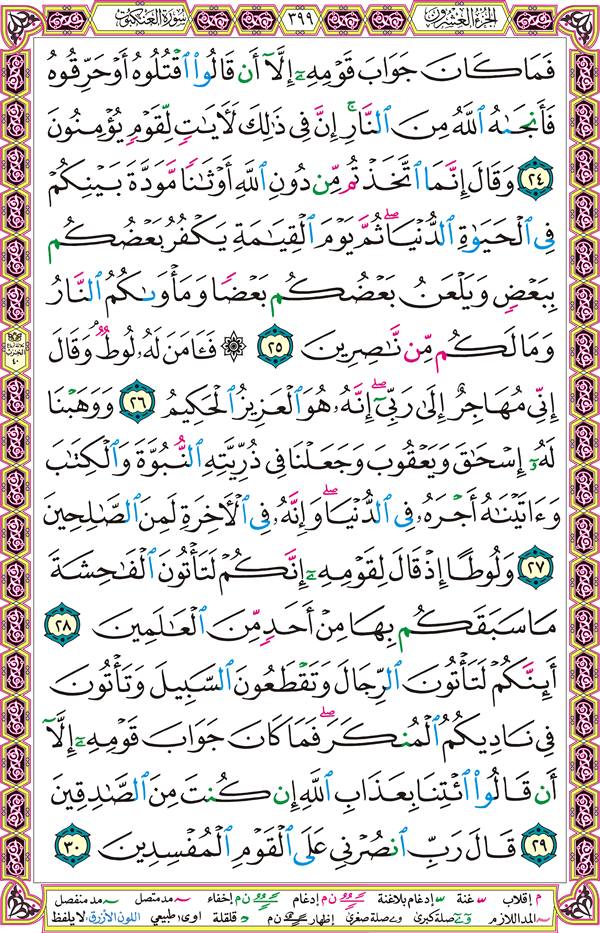 الجزء العشرون ٣٩٩ سورة العنكبوت
فَمَا كَانَ جَوَابَ قَوْمِهِۦٓ إِلَّآ أَن قَالُوا۟ ٱقْتُلُوهُ أَوْ حَرِّقُوهُ
فَأَنجَىٰهُ ٱللَّهُ مِنَ ٱلنَّارِ ۚ إِنَّ فِى ذَٰلِكَ لَـَٔايَـٰتٍ لِّقَوْمٍ يُؤْمِنُونَ
٢٤ وَقَالَ إِنَّمَا ٱتَّخَذْتُم مِّن دُونِ ٱللَّهِ أَوْثَـٰنًا مَّوَدَّةَ بَيْنِكُمْ
فِى ٱلْحَيَوٰةِ ٱلدُّنْيَا ۖ ثُمَّ يَوْمَ ٱلْقِيَـٰمَةِ يَكْفُرُ بَعْضُكُم
بِبَعْضٍ وَيَلْعَنُ بَعْضُكُم بَعْضًا وَمَأْوَىٰكُمُ ٱلنَّارُ
وَمَا لَكُم مِّن نَّـٰصِرِينَ ٢٥ ۞ فَـَٔامَنَ لَهُۥ لُوطٌ ۘ وَقَالَ
إِنِّى مُهَاجِرٌ إِلَىٰ رَبِّىٓ ۖ إِنَّهُۥ هُوَ ٱلْعَزِيزُ ٱلْحَكِيمُ ٢٦ وَوَهَبْنَا
لَهُۥٓ إِسْحَـٰقَ وَيَعْقُوبَ وَجَعَلْنَا فِى ذُرِّيَّتِهِ ٱلنُّبُوَّةَ وَٱلْكِتَـٰبَ
وَءَاتَيْنَـٰهُ أَجْرَهُۥ فِى ٱلدُّنْيَا ۖ وَإِنَّهُۥ فِى ٱلْـَٔاخِرَةِ لَمِنَ ٱلصَّـٰلِحِينَ
٢٧ وَلُوطًا إِذْ قَالَ لِقَوْمِهِۦٓ إِنَّكُمْ لَتَأْتُونَ ٱلْفَـٰحِشَةَ
مَا سَبَقَكُم بِهَا مِنْ أَحَدٍ مِّنَ ٱلْعَـٰلَمِينَ ٢٨
أَئِنَّكُمْ لَتَأْتُونَ ٱلرِّجَالَ وَتَقْطَعُونَ ٱلسَّبِيلَ وَتَأْتُونَ
فِى نَادِيكُمُ ٱلْمُنكَرَ ۖ فَمَا كَانَ جَوَابَ قَوْمِهِۦٓ إِلَّآ
أَن قَالُوا۟ ٱئْتِنَا بِعَذَابِ ٱللَّهِ إِن كُنتَ مِنَ ٱلصَّـٰدِقِينَ
٢٩ قَالَ رَبِّ ٱنصُرْنِى عَلَى ٱلْقَوْمِ ٱلْمُفْسِدِينَ ٣٠
م إقلاب غنة إدغام بلاغنة ن م إدغام ن م إخفاء مد متصل مد منفصل
المد اللازم صلة كبرى صلة صغرى إظهار ن م قلقلة اوى طبيعي اللون الأزرق: لا يلفظ